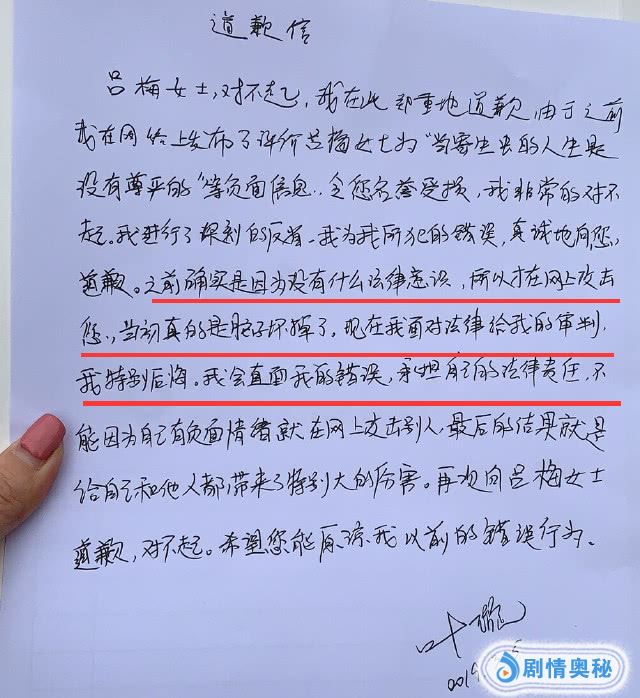 道歉信
吕梅女士,对不起,我在此郑重地道歉,由于之前
我在网络上发布了评价吕梅女士为“当寄生虫的人生是
没有尊严的”等负面信息,令您名誉受损,我非常的对不
起。我进行了深刻的反省,我为我所犯的错误,真诚地向您
道歉。之前确实是因为没有什么法律意识,所以才在网上攻击
您,当初真的是脑子坏掉了。现在我面对法律给我的审判,
我特别后悔。我会直面我的错误,承担自己的法律责任,不
能因为自己有负面情绪就在网上攻击别人,最后的结果就是
给自己和他人都带来了特别大的厉害。再次向吕梅女士
道歉,对不起。希望您能原谅我以前的错误行为。
叶璇
2019
剧情奥秘